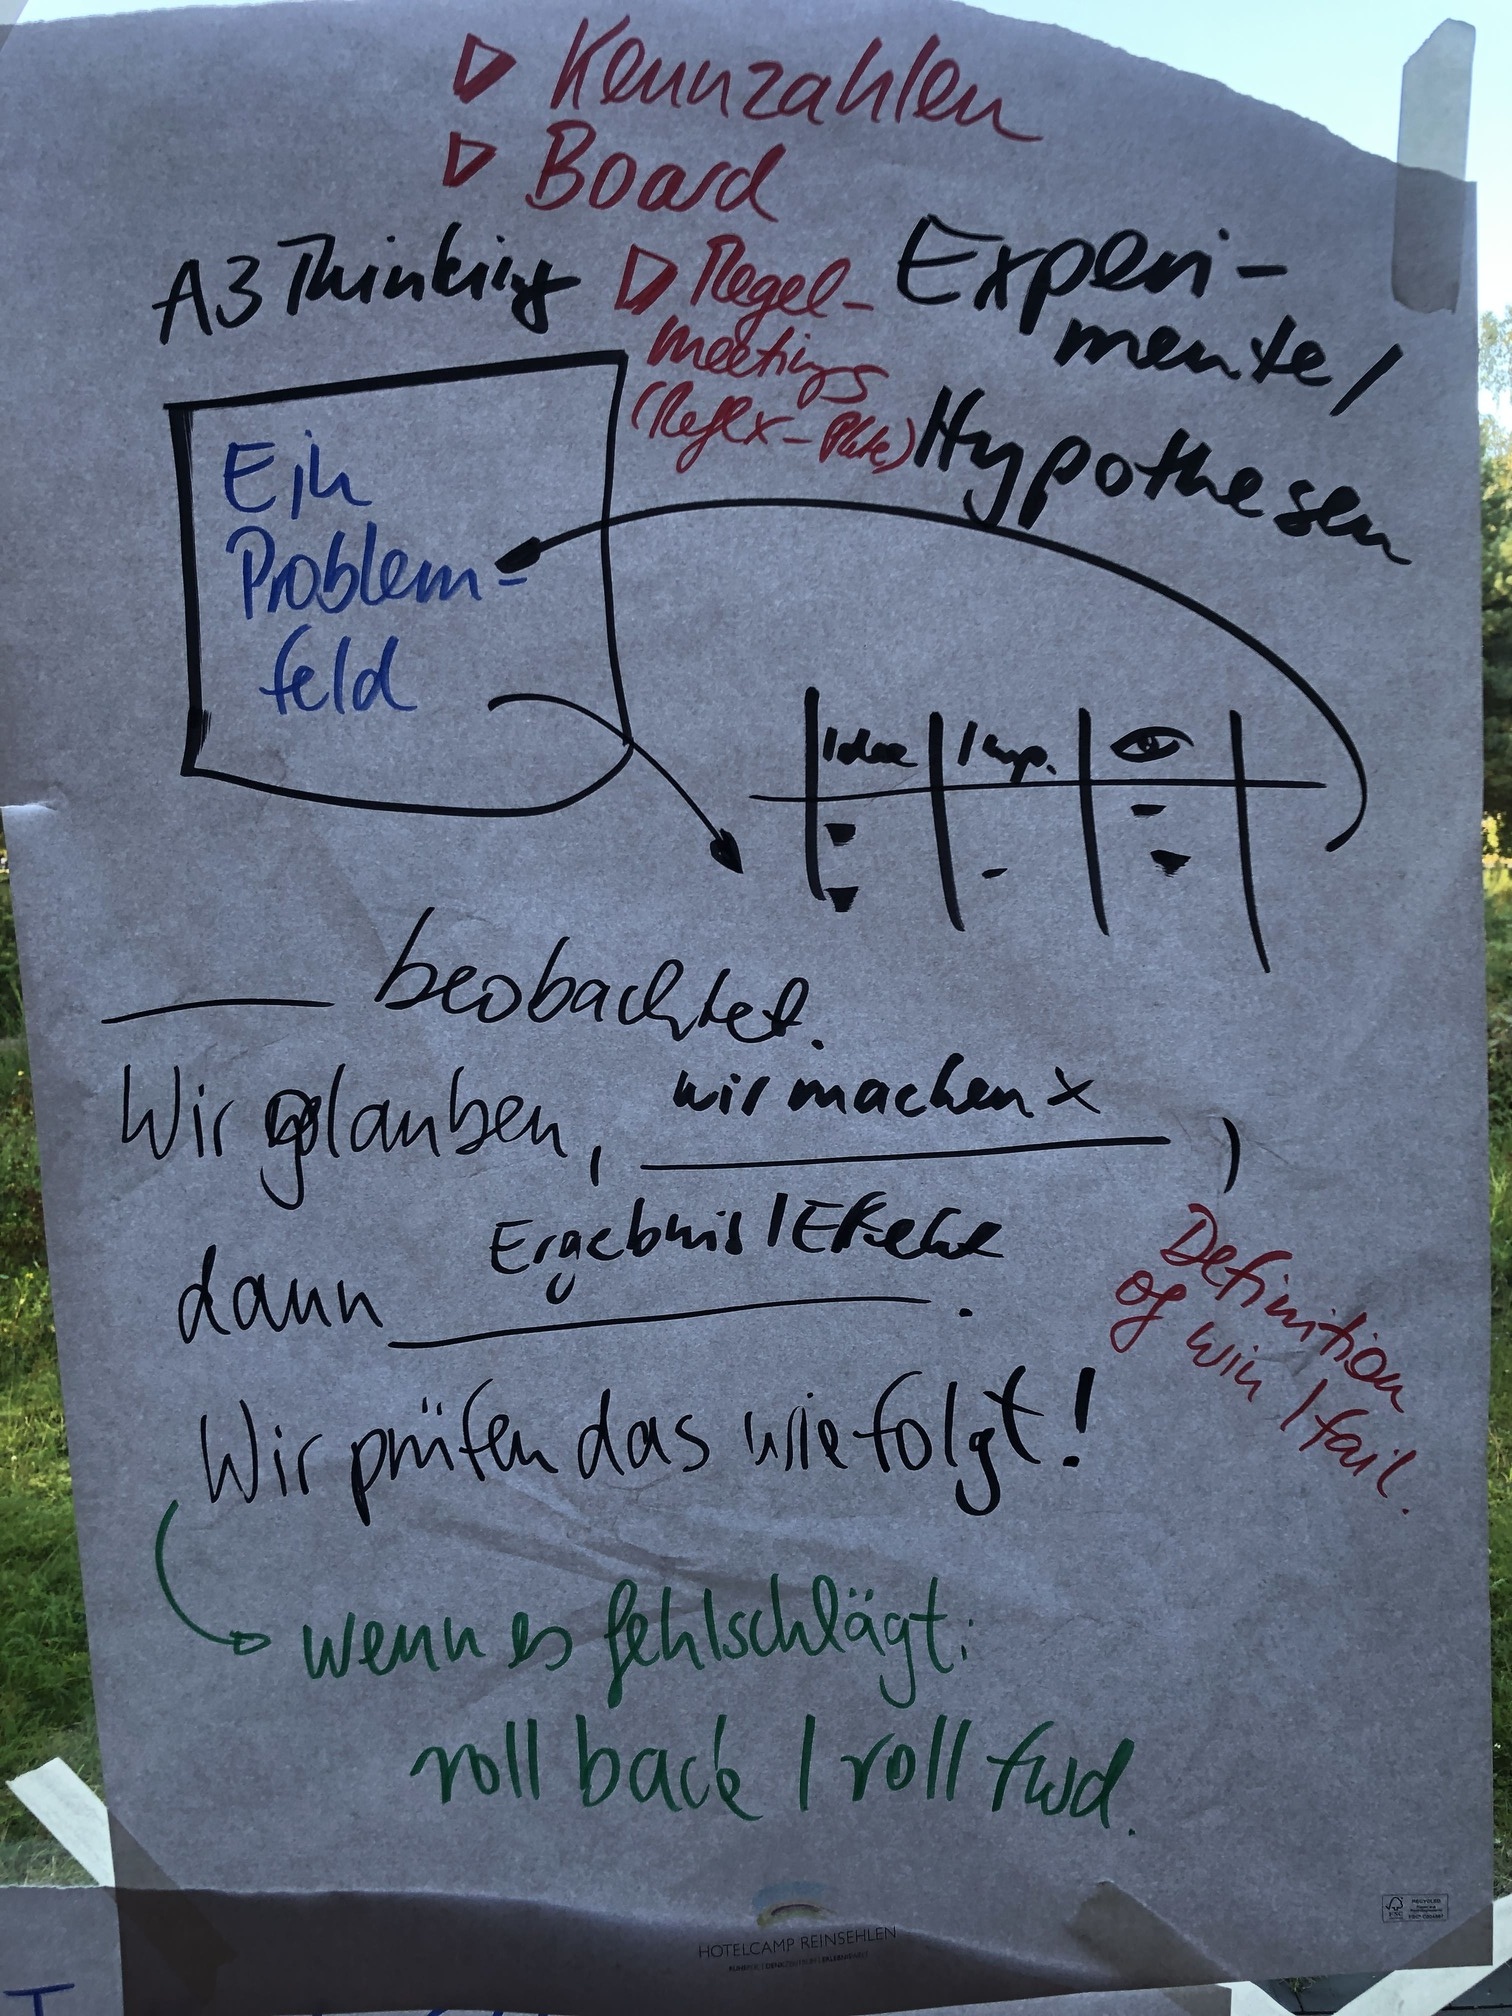 Kennzahlen
Board
A3 Thinking
Regel-
meetings
Experi-
mente/
Hypothesen
Ein
Problem-
feld
Idee
Imp.
beobachtet.
Wir glauben, wir machen x ,
dann Ergebnis/Effekt .
Definition
of win / fail.
Wir prüfen das wie folgt!
wenn es fehlschlägt:
roll back / roll fwd.
HOTELCAMP REINSEHLEN